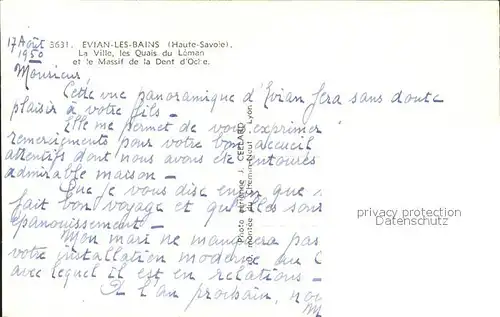 17 Août
1950
3631. EVIAN-LES-BAINS (Haute-Savoie).
La Ville, les Quais du Léman
et le Massif de la Dent d'Oche.
Monsieur
Cette vue panoramique d'Evian fera sans doute
plaisir à votre fils -
Elle me permet de vous exprimer
remerciements pour votre bon accueil
attentifs dont nous avons été entourés
admirable maison -
Que je vous dise enfin que
fait bon voyage et qu'elles sont
épanouissement -
Mon mari ne manquera pas
votre installation moderne au
avec lequel il est en relations -
A l'an prochain, nou
M
Photo aérienne J. CELLARD
montée du Chemin-Neuf Lyon
privacy protection
Datenschutz